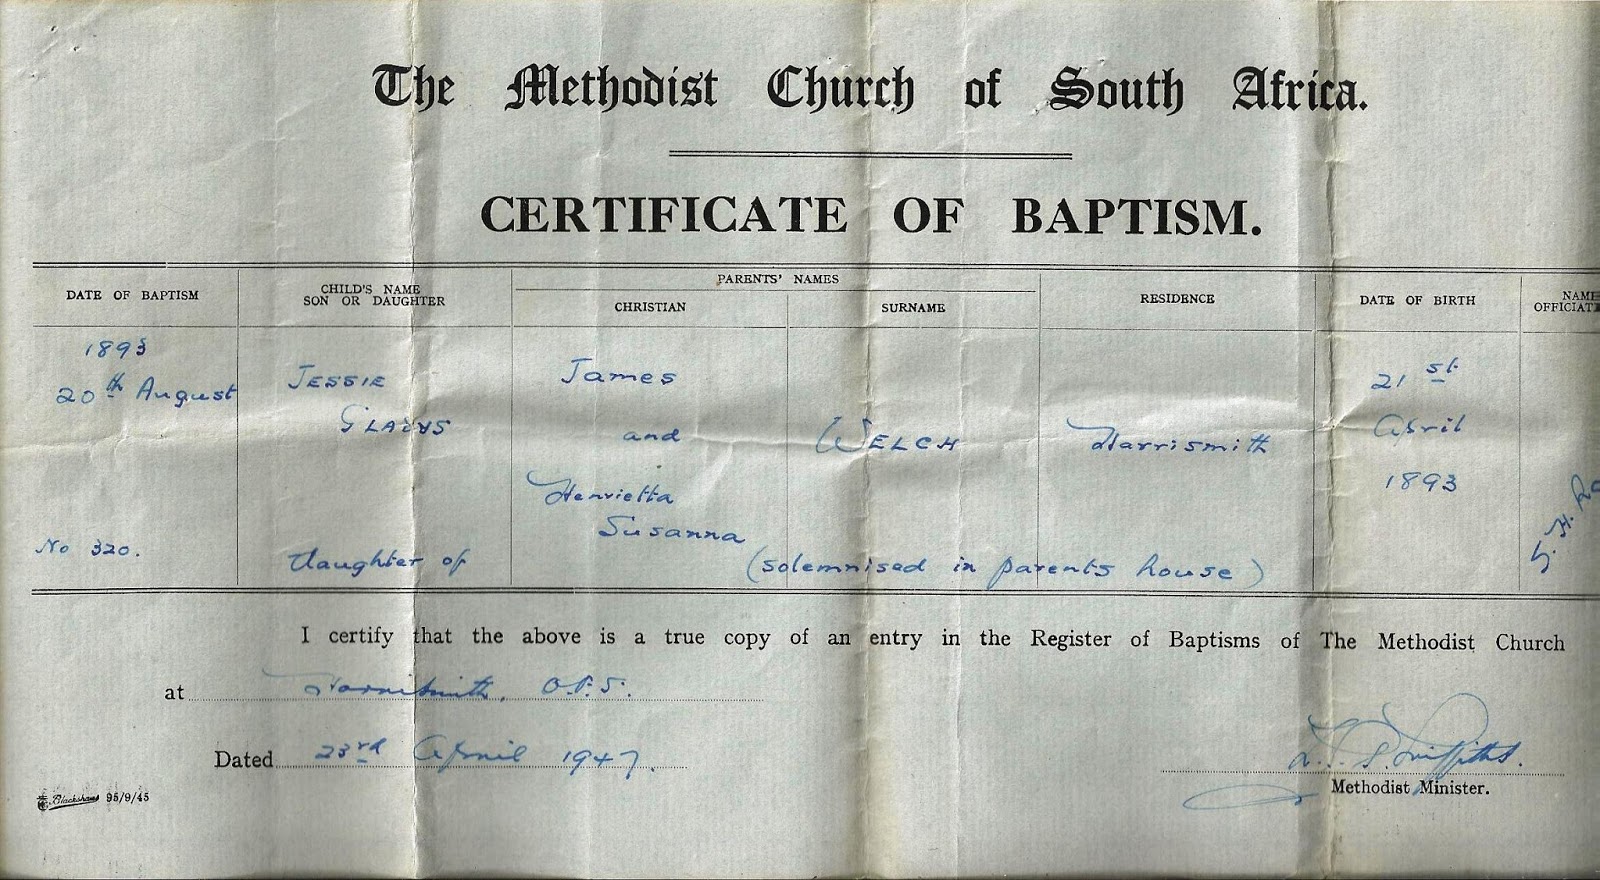 The Methodist Church of South Africa.
CERTIFICATE OF BAPTISM.
DATE OF BAPTISM
CHILD'S NAME
SON OR DAUGHTER
PARENTS' NAMES
CHRISTIAN
SURNAME
RESIDENCE
DATE OF BIRTH
NAME
OFFICIAT
1893
20th August
No 320.
JESSIE
GLADYS
Daughter of
James
and
Henrietta
Susanna
WELCH
Harrismith
(solemnised in parents house)
21st
April
1893
I certify that the above is a true copy of an entry in the Register of Baptisms of The Methodist Church
at Harrismith, O.F.S.
Dated 23rd April 1947.
Griffiths.
Methodist Minister.
Blackshaws 95/9/45